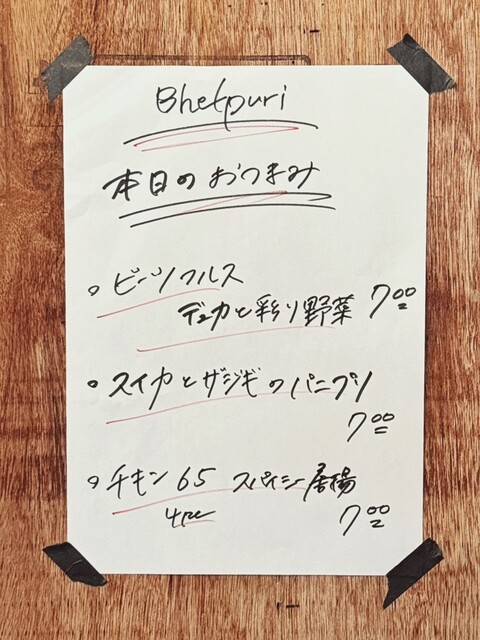 Bhelpuri
本日のおつまみ
・ビーツフムス
デュカと彩り野菜 7.00
・スイカとザジキのパニプリ
7.00
・チキン65 スパイシー唐揚
4pc 7.00